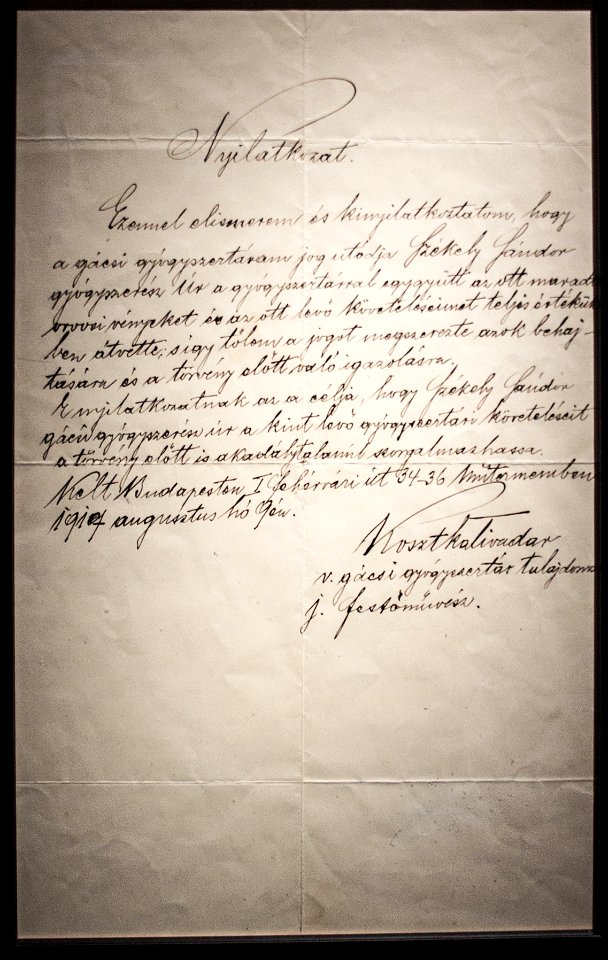 Nyilatkozat.
Ezennel elismerem és kinyilatkoztatom, hogy
a gácsi gyógyszertáram jog utódja Székely Sándor
gyógyszerész Úr a gyógyszertárral eggyütt az ott maradt
orvosi vényeket és az ott levő követeléseimet teljes értékük
ben átvette, s így tőlem a jogot megszerezte azok behaj-
tására és a törvény előtt való igazolásra.
E nyilatkozatnak az a célja, hogy Székely Sándor
gácsi gyógyszerész úr a kint levő gyógyszertári követeléseit
a törvény előtt is akadálytalanul szorgalmazhassa.
Kelt Budapesten I fehérvári út 34-36 Műtermemben
augusztus hó 9én.
Kosztkativadar
v. gácsi gyógyszertár tulajdonos
j. festőművész.